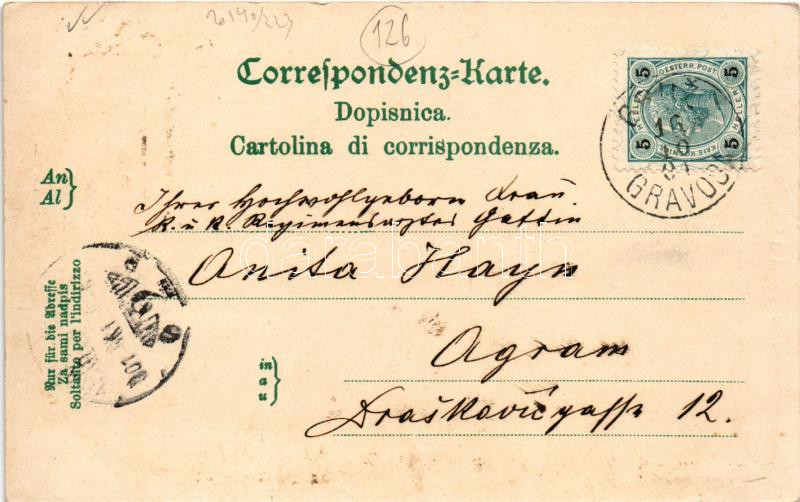 26140/223
126
Correspondenz-Karte.
Dopisnica.
Cartolina di corrispondenza.
5 OESTERR. POST 5
HELLER HELLER
5 KAIS. KOENIGL. 5
16
GRAVOSA
An
Al
Ihrer Hochwohlgeborn Frau.
K. u. K. Regimensarztes Gattin
Anita Hayn
darabanth
Nur für die Adresse
Za sami nadpis
Soltanto per l'indirizzo
in
a
u
Agram
Draškovićgasse 12.